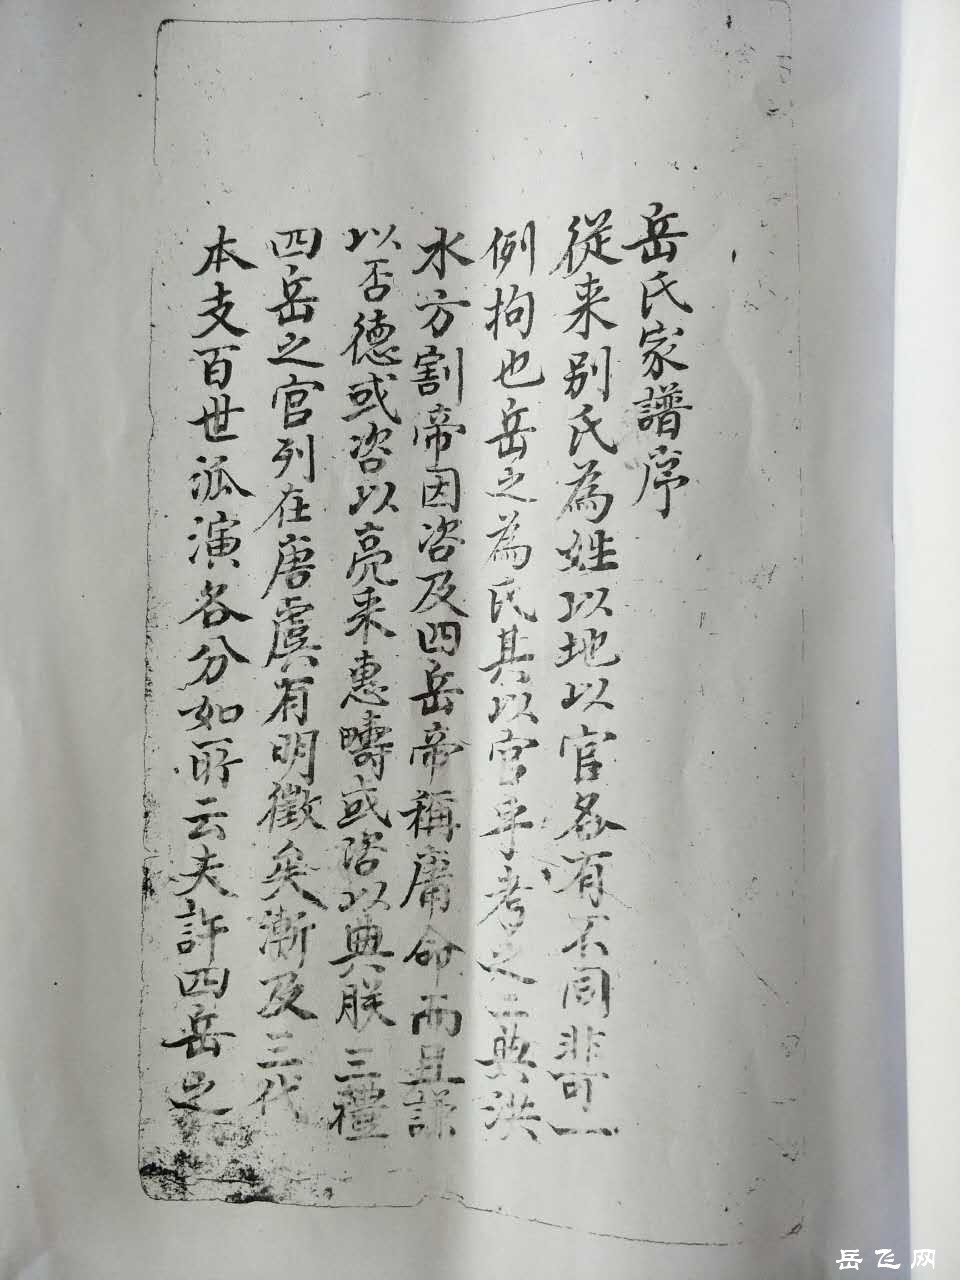 岳氏家譜序
從来别氏為姓以地以官各有不同非可一
例拘也岳之為氏其以官乎考之二典洪
水方割帝因咨及四岳帝稱庸命而且謙
以否德或咨以亮采惠疇或咨以典朕三禮
四岳之官列在唐虞有明徵矣漸及三代
本支百世派演各分如所云夫許四岳之
岳飞网